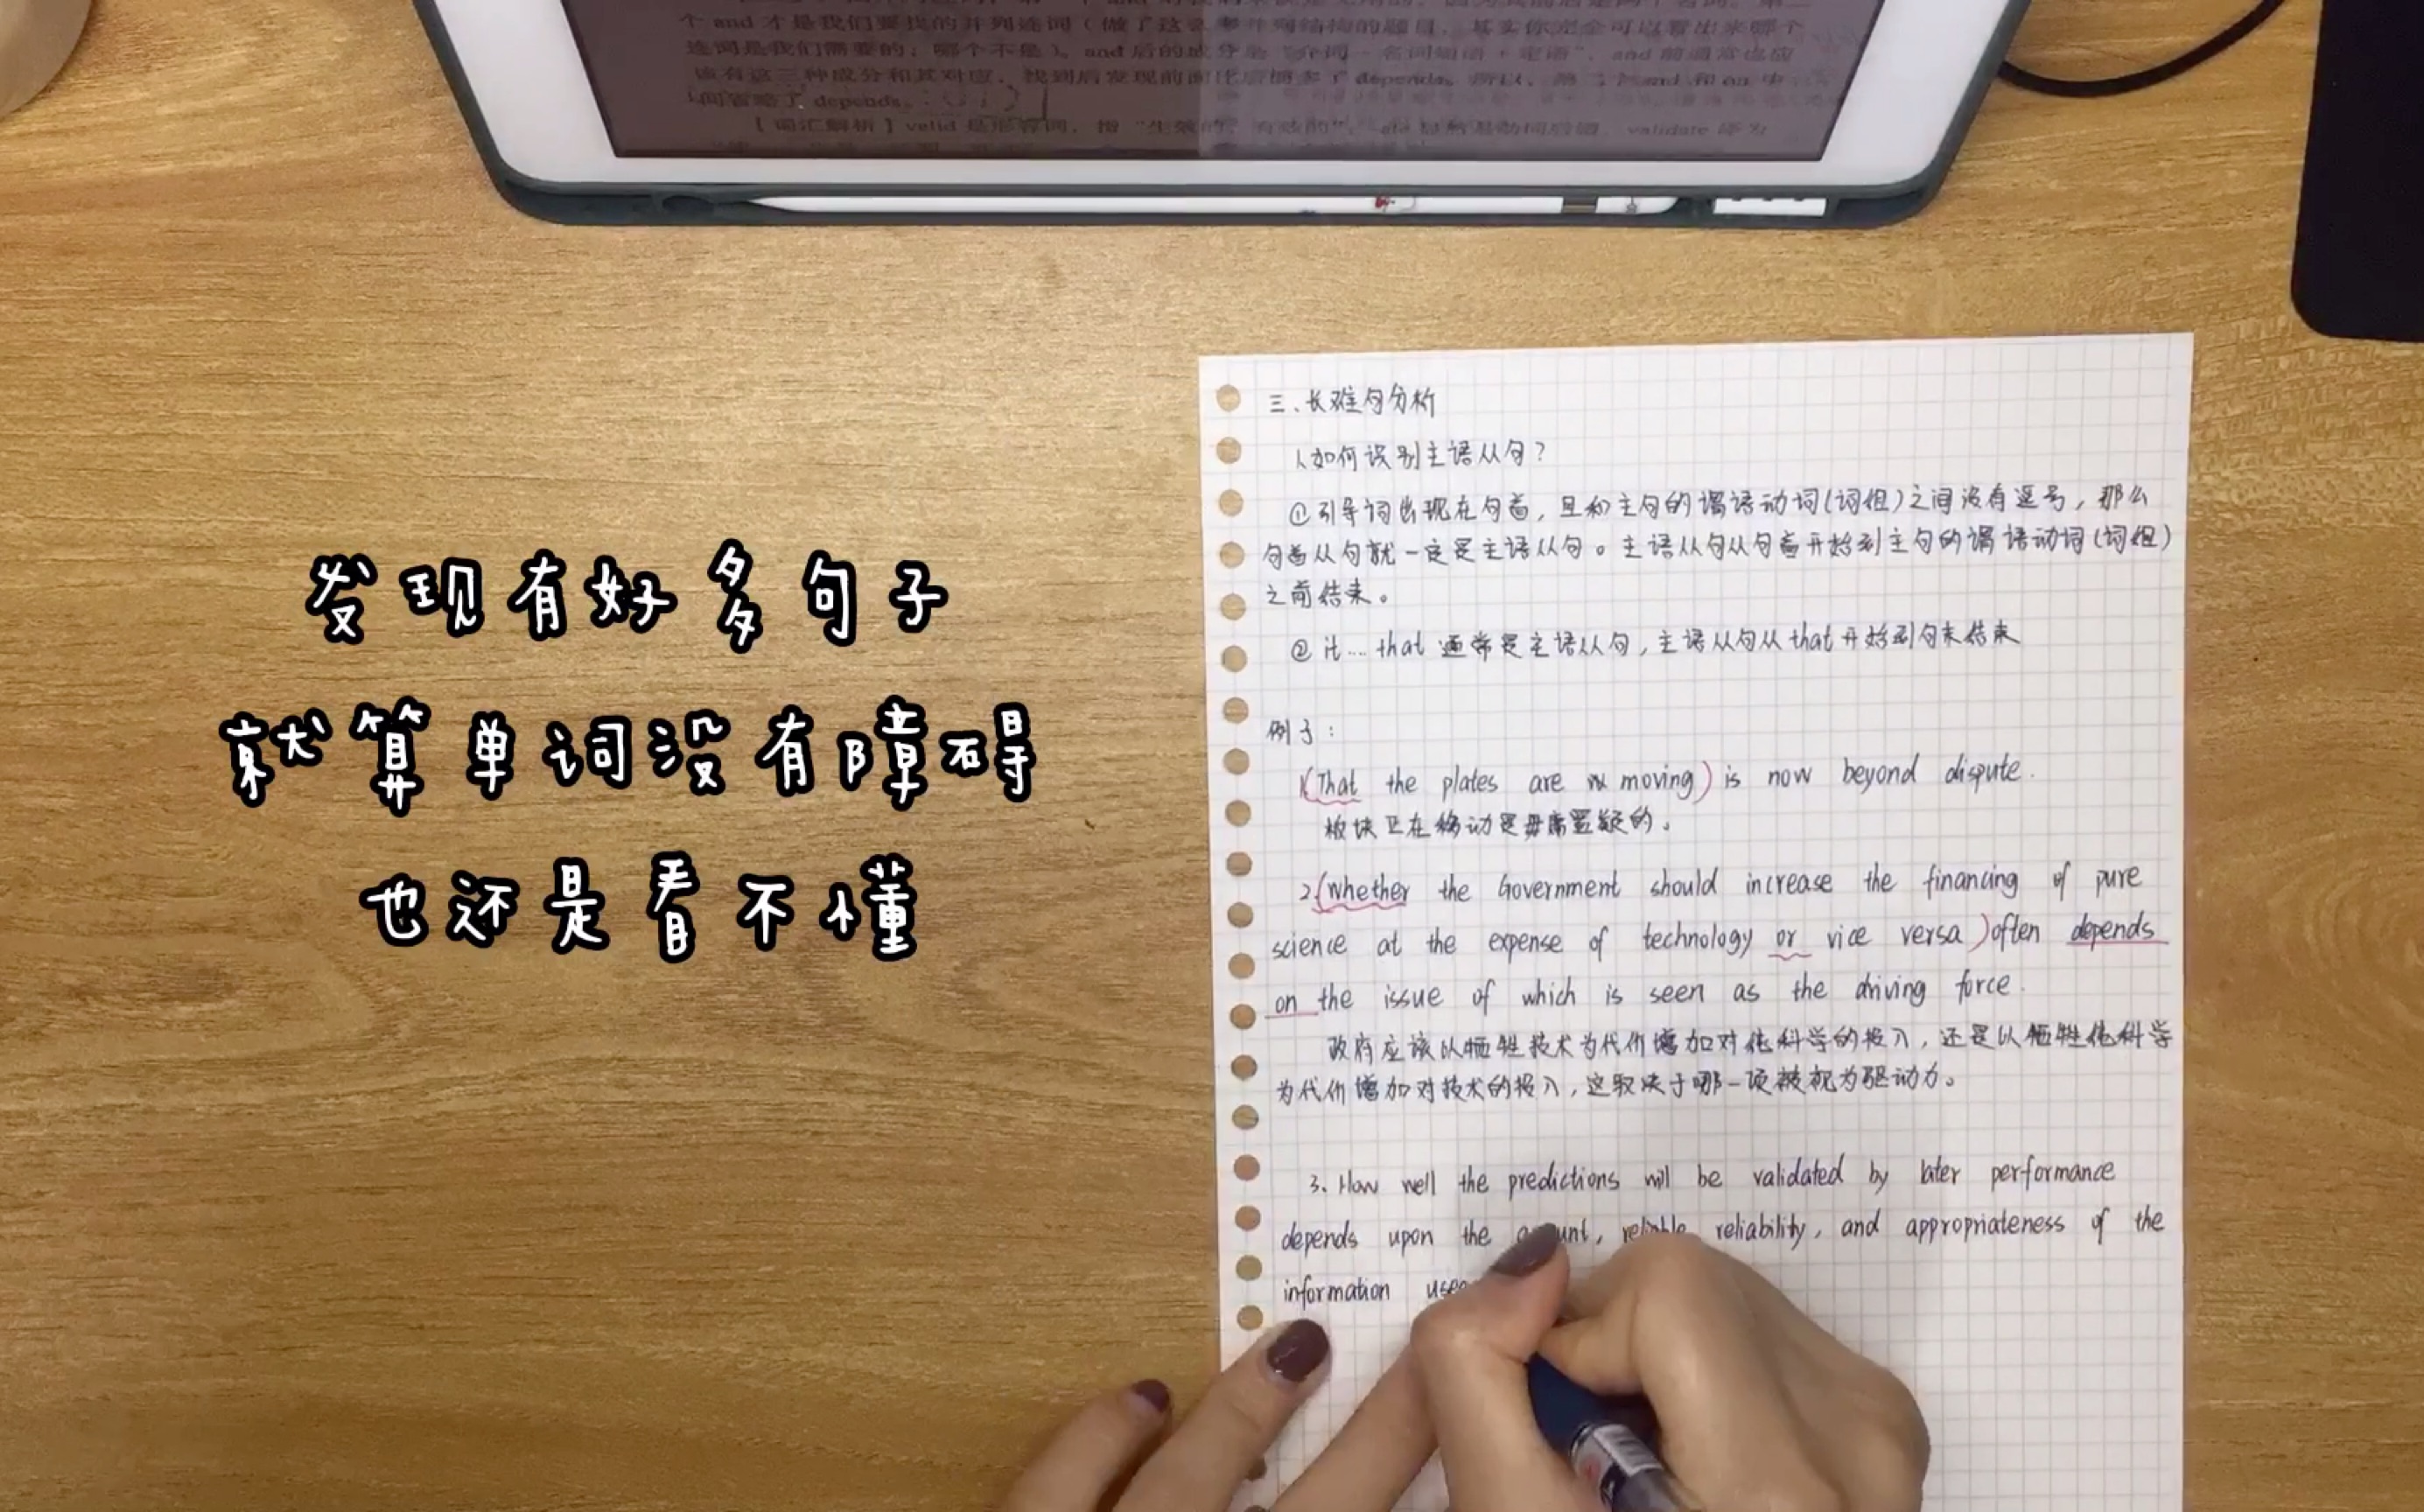 个 and 才是我们要找的并列连词（做了这么多并列结构的题目，其实你完全可以看出来哪个
连词是我们需要的，哪个不是）。and 后的成分是“介词+名词短语+定语”，and 前通常也应
该有这三种成分和其对应，找到后发现前面比后面多了 depends，所以，第二个 and 和 on 中
间省略了 depends。
【词汇解析】valid 是形容词，指“生效的，有效的”，-ate 是动词后缀，validate 译为
发现有好多句子
就算单词没有障碍
也还是看不懂
三、长难句分析
1、如何识别主语从句？
①引导词出现在句首，且和主句的谓语动词(词组)之间没有逗号，那么
句首从句就一定是主语从句。主语从句从句首开始到主句的谓语动词(词组)
之前结束。
②it...that 通常是主语从句，主语从句从that开始到句末结束
例子：
1(That the plates are moving) is now beyond dispute.
板块正在移动是毋庸置疑的。
2.(Whether the Government should increase the financing of pure
science at the expense of technology or vice versa) often depends
on the issue of which is seen as the driving force.
政府应该以牺牲技术为代价增加对纯科学的投入，还是以牺牲纯科学
为代价增加对技术的投入，这取决于哪一项被视为驱动力。
3、How well the predictions will be validated by later performance
depends upon the amount, reliability, and appropriateness of the
information